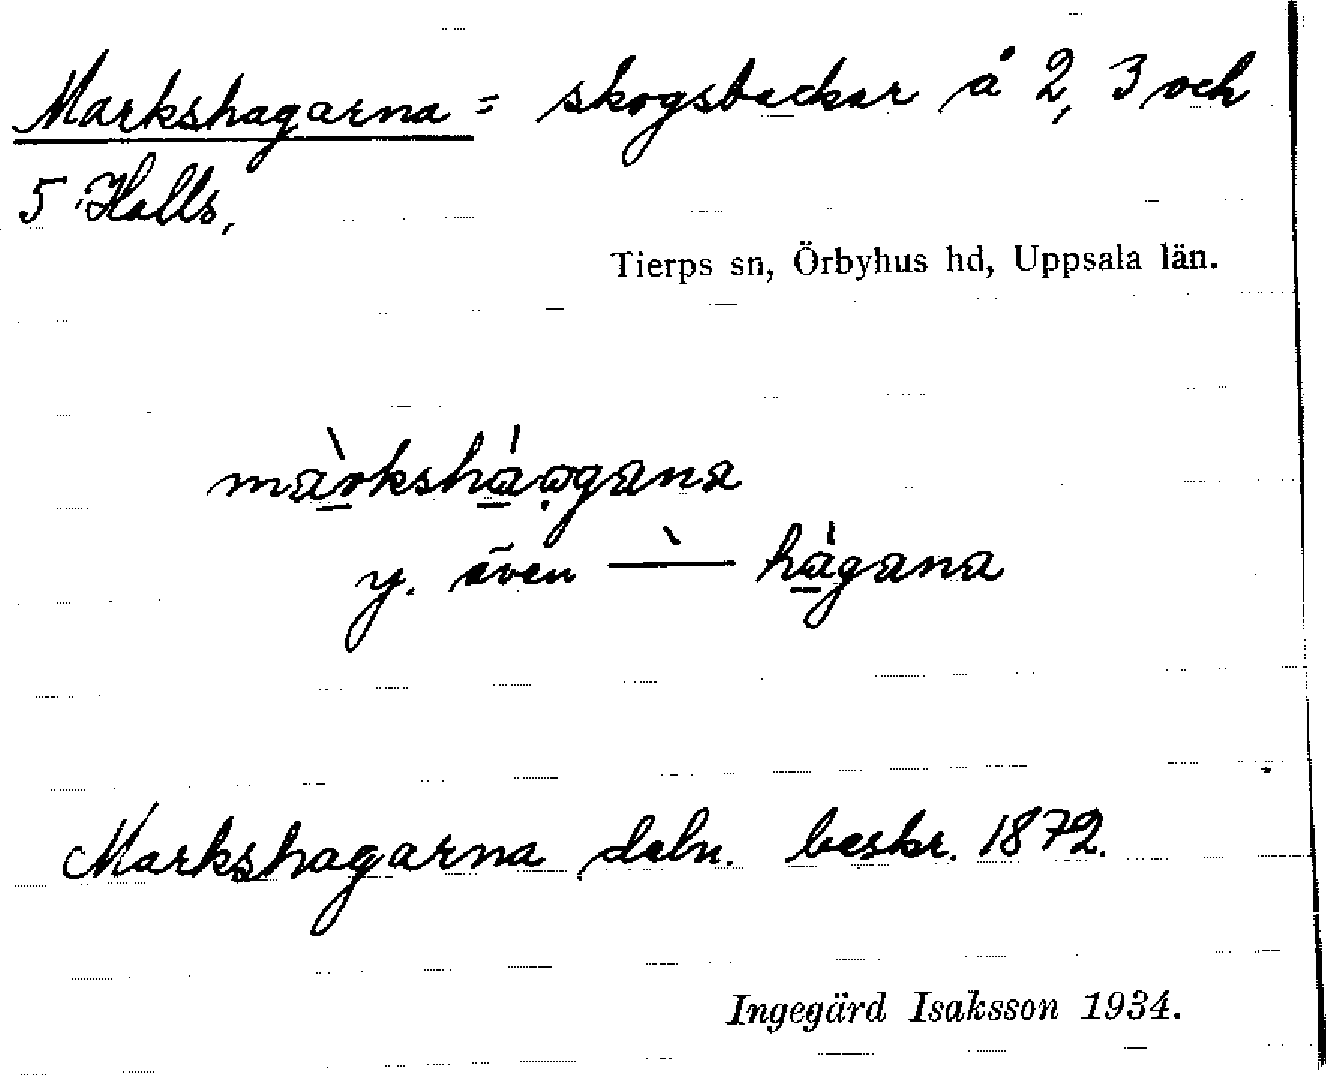 Markshagarna = skogsbackar å 2, 3 och
5 Halls,
Tierps sn, Örbyhus hd, Uppsala län.
màrkshágana
y. även — hágana
Markshagarna deln. beskr. 1872.
Ingegärd Isaksson 1934.